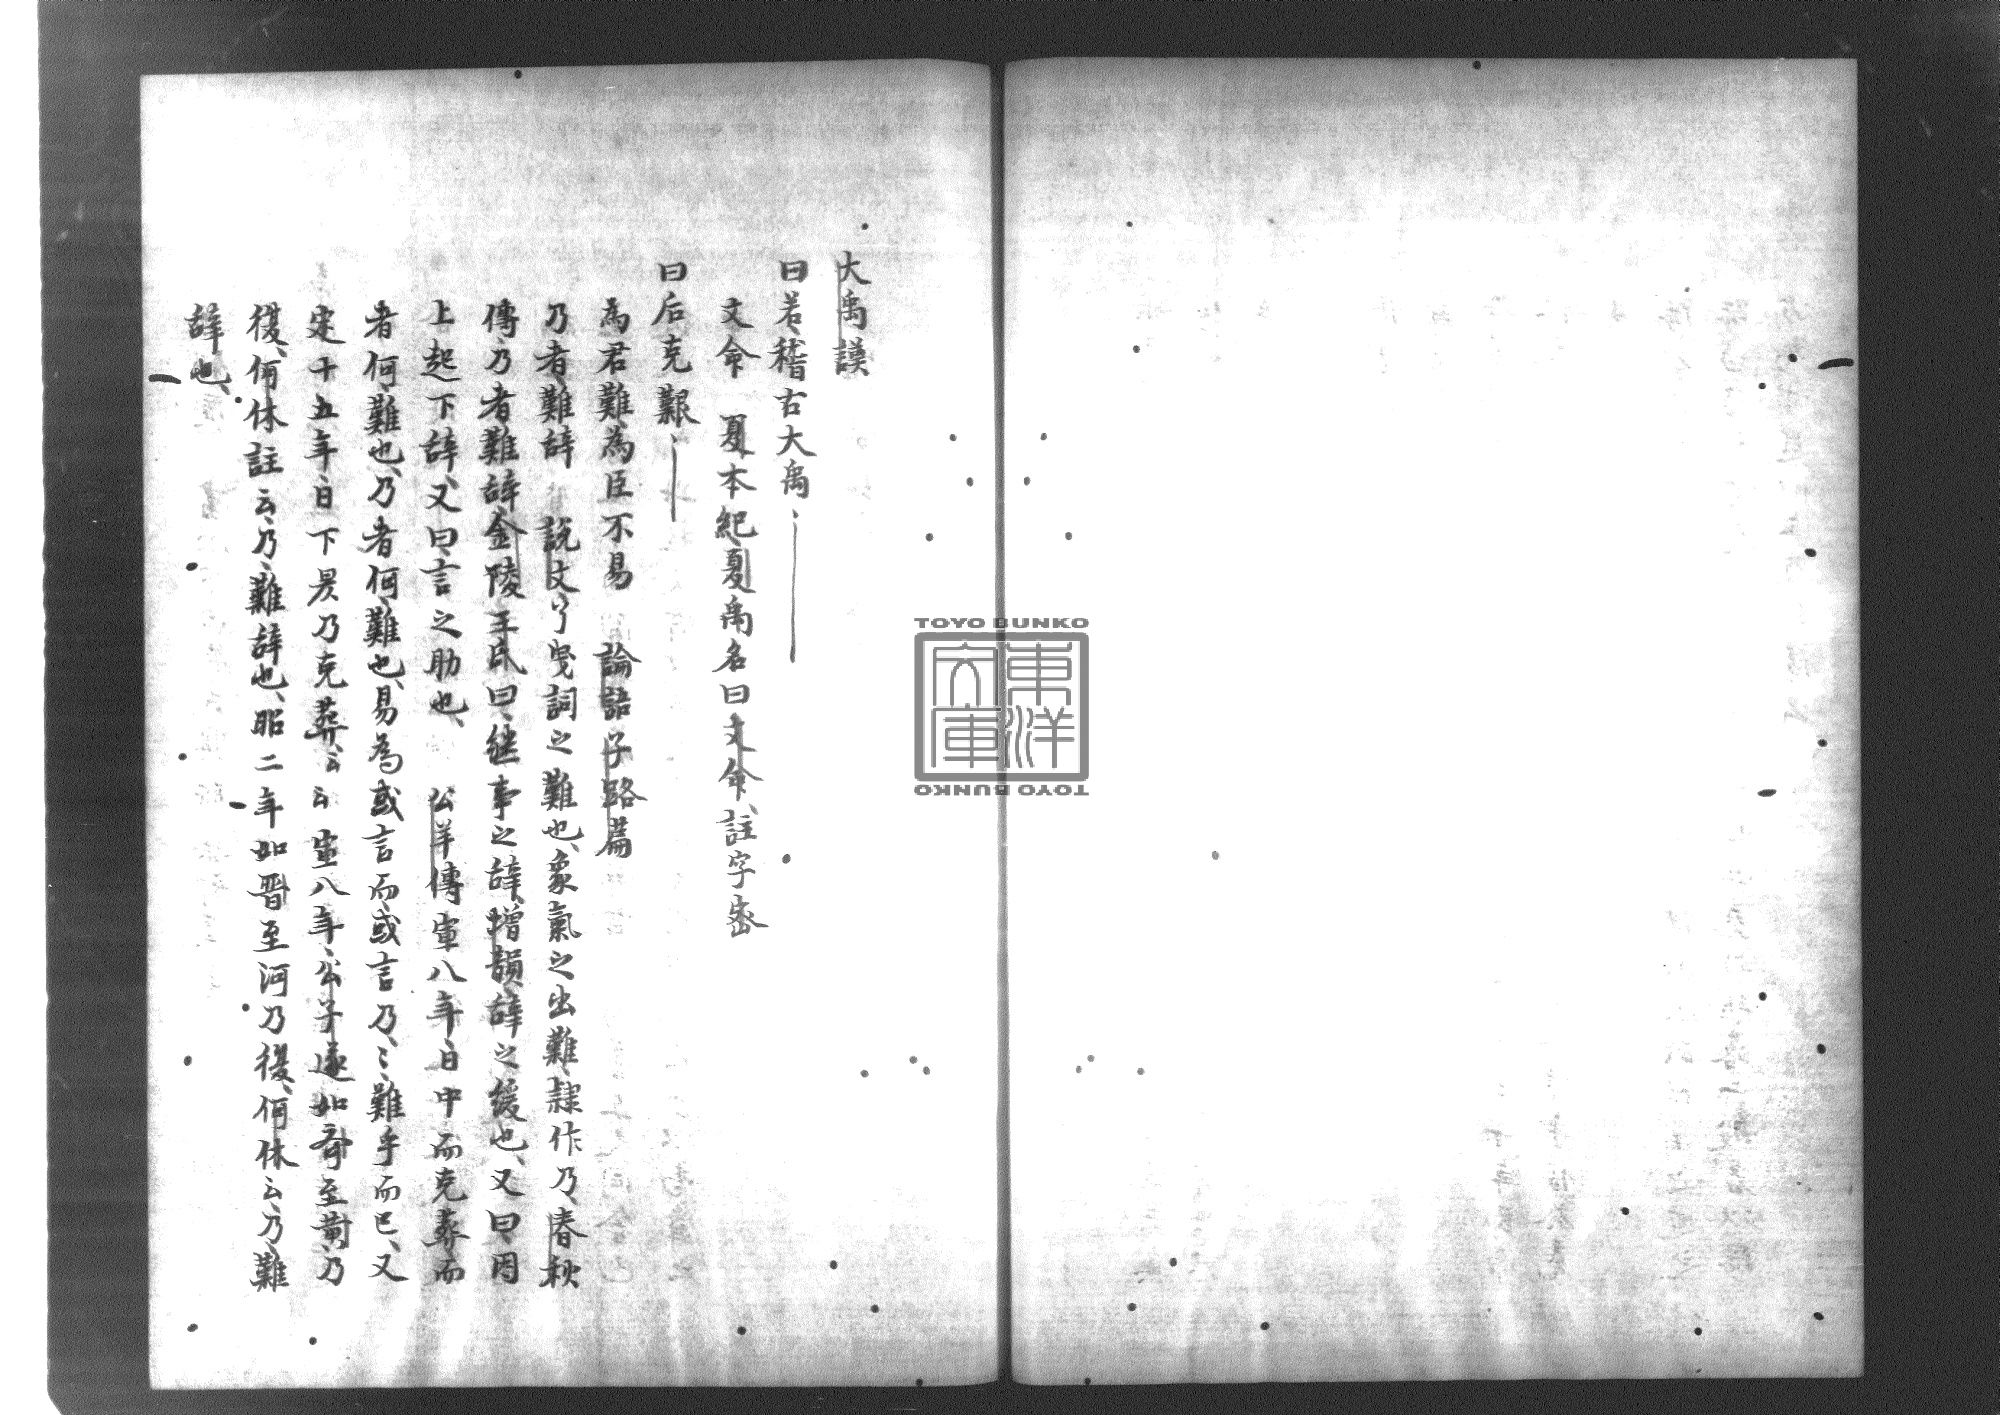 大禹謨
曰若稽古大禹、｜
文命　夏本紀夏禹名曰文命、註字密
曰后克艱、｜
為君難為臣不易　論語子路篇
乃者難辞　説文曳詞之難也、象氣之出難、隷作乃、春秋
傳乃者難辞、金陵王氏曰、継事之辞、増韻、辞之緩也、又曰、因
上起下辞、又曰、言之助也、　公羊傳宣八年、日中而克葬、而
者何、難也、乃者何、難也、曷為或言而或言乃、乃難乎而已、又
定十五年、日下昃乃克葬、云云、宣八年、公子遂如斉至黄、乃
復、何休註云、乃、難辞也、昭二年如晋至河乃復、何休云、乃難
辞也、
TOYO BUNKO
東洋文庫
TOYO BUNKO